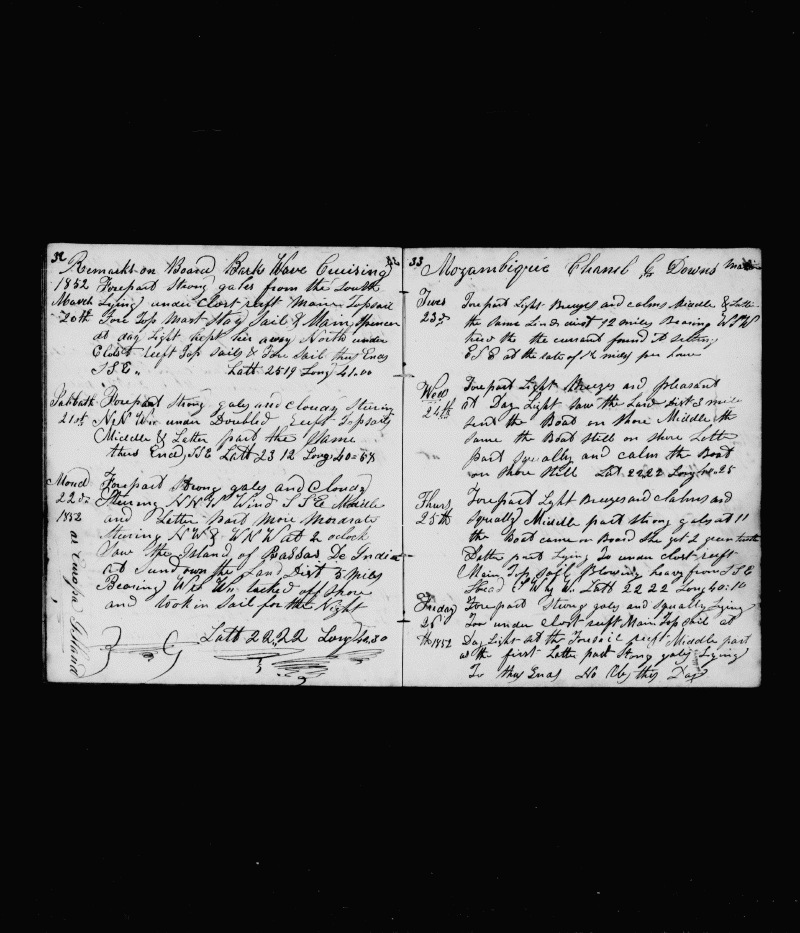 32
Remarks on Board Bark Wave Cruising
1852 Forepart Strong gales from the South
March Lying under Clost reeft Main Topsail
20th Fore Top Mast Stay Sail & Main Spencer
at day Light kept her away North under
Clost reeft Top Sails & Fore Sail thus Ends
SSE Latt 25 19 Long 41.00
Sabbath Forepart Strong gales and Cloudy Stering
21st NNW under Doubled reeft Topsails
Middle & Letter part the Same
thus Ends SSE Latt 23 12 Long 40=58
Mond Forepart Strong gales and Cloudy
22d Stering NNW Wind SSE Middle
1852 and Letter part More Moderate
Stering NW & WNW at 2 oclock
Saw the Island of Bassas De India
at Sundown the Land Dist 5 Miles
Bearing tacked off Shore
and took in Sail for the Night
Latt 22.22 Long 40.30
Island
33
Mozambique Chanel G Downs
Tues Forepart Light Breezes and calms Middle & Letter
23d the Same Land dist 12 miles Bearing WSW
here the the current found to Setting
ESE at the rate of miles per hour
Wens Forepart Light Breezes and pleasant
24th at Day Light Saw the Land dist 3 mile
Sent the Boat on Shore Middle the
Same the Boat Still on Shore Letter
part Squally and calm the Boat
on Shore Still Lat 22 22 Long 25
Thurs Forepart Light Breezes and Calms and
25th Squally Middle part Strong gales at 11
the Boat came on Board She got 2 green
Letter part Lying To under Clost reeft
Main Top Sail Blowing heavy from SSE
Head Latt 22 22 Long 40:10
Friday Forepart Strong gales and Squally Lying
26 Too under Clost reeft Main Top Sail at
th 1852 Day Light Set the Foresail reeft Middle part
as the first Latter part Strong gales Lying
To thus Ends No Ob this Day